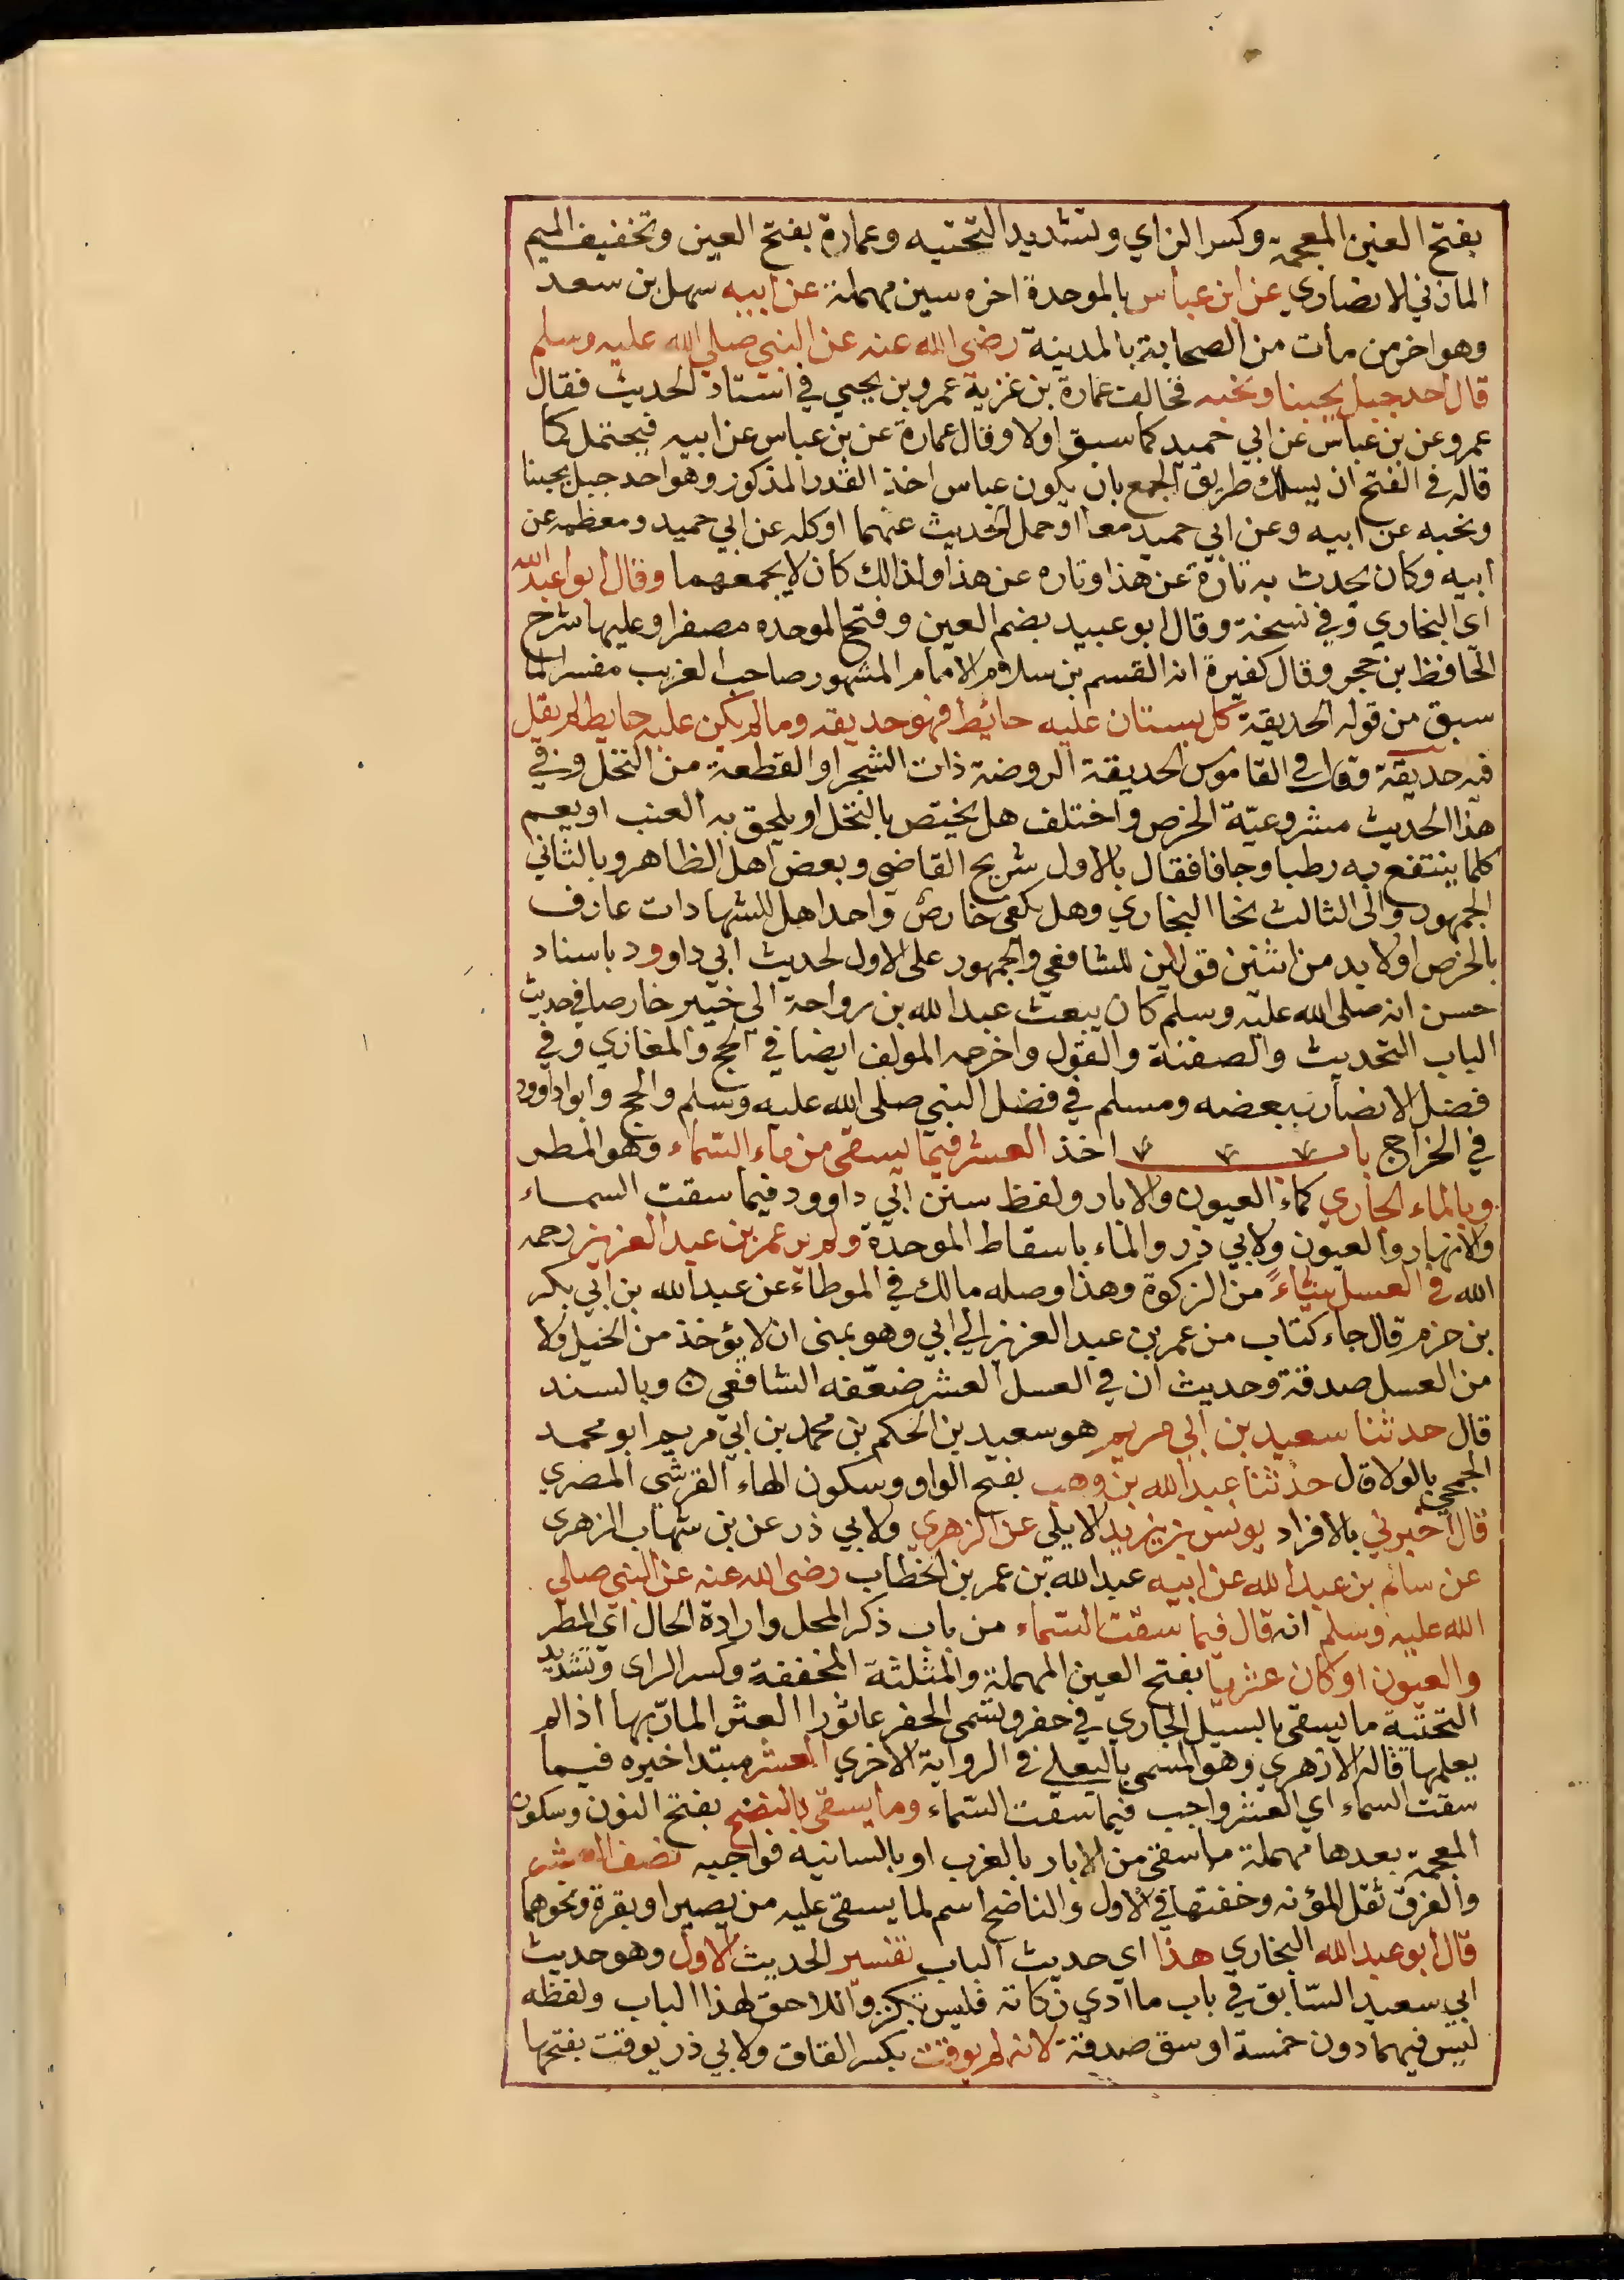 بفتح الغين المعجمة وكسر الزاي وتشديد التحتيه وعمارة بفتح العين وتخفيف الميم
المازني الانصاري عن ابن عباس بالموحدة اخره سين مهملة عن ابيه سهل بن سعد
وهو اخر من مات من الصحابة بالمدينة رضى الله عنه عن النبي صلى الله عليه وسلم
قال احد جبل يحبنا ونحبه فخالف عمارة بن غزية عمرو بن يحيي في اسناد الحديث فقال
عمرو عن بن عباس عن ابي حميد كما سبق اولا وقال عمارة عن بن عباس عن ابيه فيحتمل كما
قاله في الفتح ان يسلك طريق الجمع بان يكون عباس اخذ القدر المذكور وهو احد جبل يحبنا
ونحبه عن ابيه وعن ابي حميد معا او حمل الحديث عنهما او كله عن ابي حميد ومعظمه عن
ابيه وكان يحدث به تارة عن هذا وتاره عن هذا ولذالك كان لا يجمعهما وقال ابو اعبد الله
اى البخاري وفي نسخة وقال ابو عبيد بضم العين وفتح الموحده مصغرا وعليها شرح
الحافظ بن حجر وقال كغيرة انه القسم بن سلام الامام المشهور صاحب الغريب مفسر الما
سبق من قوله الحديقة كل بستان عليه حائط فهو حديقه ومالم يكن عليه حايط لم يقل
فيه حديقة وقال في القاموس الحديقة الروضة ذات الشجر او القطعة من النخل وفي
هذا الحديث مشروعية الخرص واختلف هل يختص بالنخل او يلحق به العنب او يعم
كلما ينتفع به رطبا وجافا فقال بالاول شريح القاضي وبعض اهل الظاهر وبالثاني
الجمهور والى الثالث نحا البخاري وهل يكفى خارص واحد اهل للشهادات عارف
بالخرص اولا بد من اثنين قولين للشافعي والجمهور على الاول لحديث ابي داوود باسناد
حسن انه صلى الله عليه وسلم كان يبعث عبد الله بن رواحة الي خيبر خارصا في حديث
الباب التحديث والصفنة والقول واخرجه المولف ايضا في الحج والمغازي وفي
فضل الانصار ببعضه ومسلم في فضل النبي صلى الله عليه وسلم والحج وابوا داوود
في الخراج باب اخذ العشر فيما يسقى من ماء السماء وهو المطر
وبالماء الجاري كماء العيون والابار ولفظ سنن ابي داوود فيما سقت السماء
والانهار والعيون ولابي ذر والماء باسقاط الموحدة ولم ير عمر بن عبد العزيز رحمه
الله في العسل شياء من الزكوة وهذا وصله مالك في الموطاء عن عبد الله بن ابي بكر
بن حزم قال جاء كتاب من عمر بن عبد العزيز الي ابي وهو بمنى ان لا يؤخذ من الخيل ولا
من العسل صدقة وحديث ان في العسل العشر ضعفه الشافعي ۞ وبالسند
قال حدثنا سعيد بن ابي مريم هو سعيد بن الحكم بن محمد بن ابي مريم ابو محمد
الجمحي بالولا قال حدثنا عبد الله بن وهب بفتح الواو وسكون الهاء القرشي المصري
قال اخبرني بالافراد يونس بن يزيد الايلي عن الزهري ولابي ذر عن بن شهاب الزهرى
عن سالم بن عبد الله عن ابيه عبد الله بن عمر بن الخطاب رضى الله عنه عن النبي صلي
الله عليه وسلم انه قال فيما سقت السماء من باب ذكر المحل وارادة الحال اي المطر
والعيون او كان عشريا بفتح العين المهملة والمثلثة المخففة وكسر الراى وتشديد
التحتية ما يسقى بالسيل الجاري في حفر وتسمى الحفر عاثورا العثر المار بها اذا لم
يعلمها قاله الازهري وهو المسمى بالبعلي في الرواية الاخرى العشر مبتدا خيره فيما
سقت السماء اي العشر واجب فيما سقت السماء وما يسقى بالنضح بفتح النون وسكون
المعجمة بعدها مهملة ما سقى من الابار بالغرب او بالسانيه فواجبه نصف العشر
والفرق ثقل المؤنه وخفتها في الاول والناضح اسم لما يسقى عليه من بصير او بقرة ونحوهما
قال ابو عبد الله البخاري هذا اى حديث الباب تفسير الحديث الاول وهو حديث
ابي سعيد السابق في باب ما ادي زكاته فليس بكنز واللاحق لهذا الباب ولفظه
ليس فيهما دون خمسة اوسق صدقة لانه لم يوقت بكسر القاف ولابي ذر يوقت بفتحها